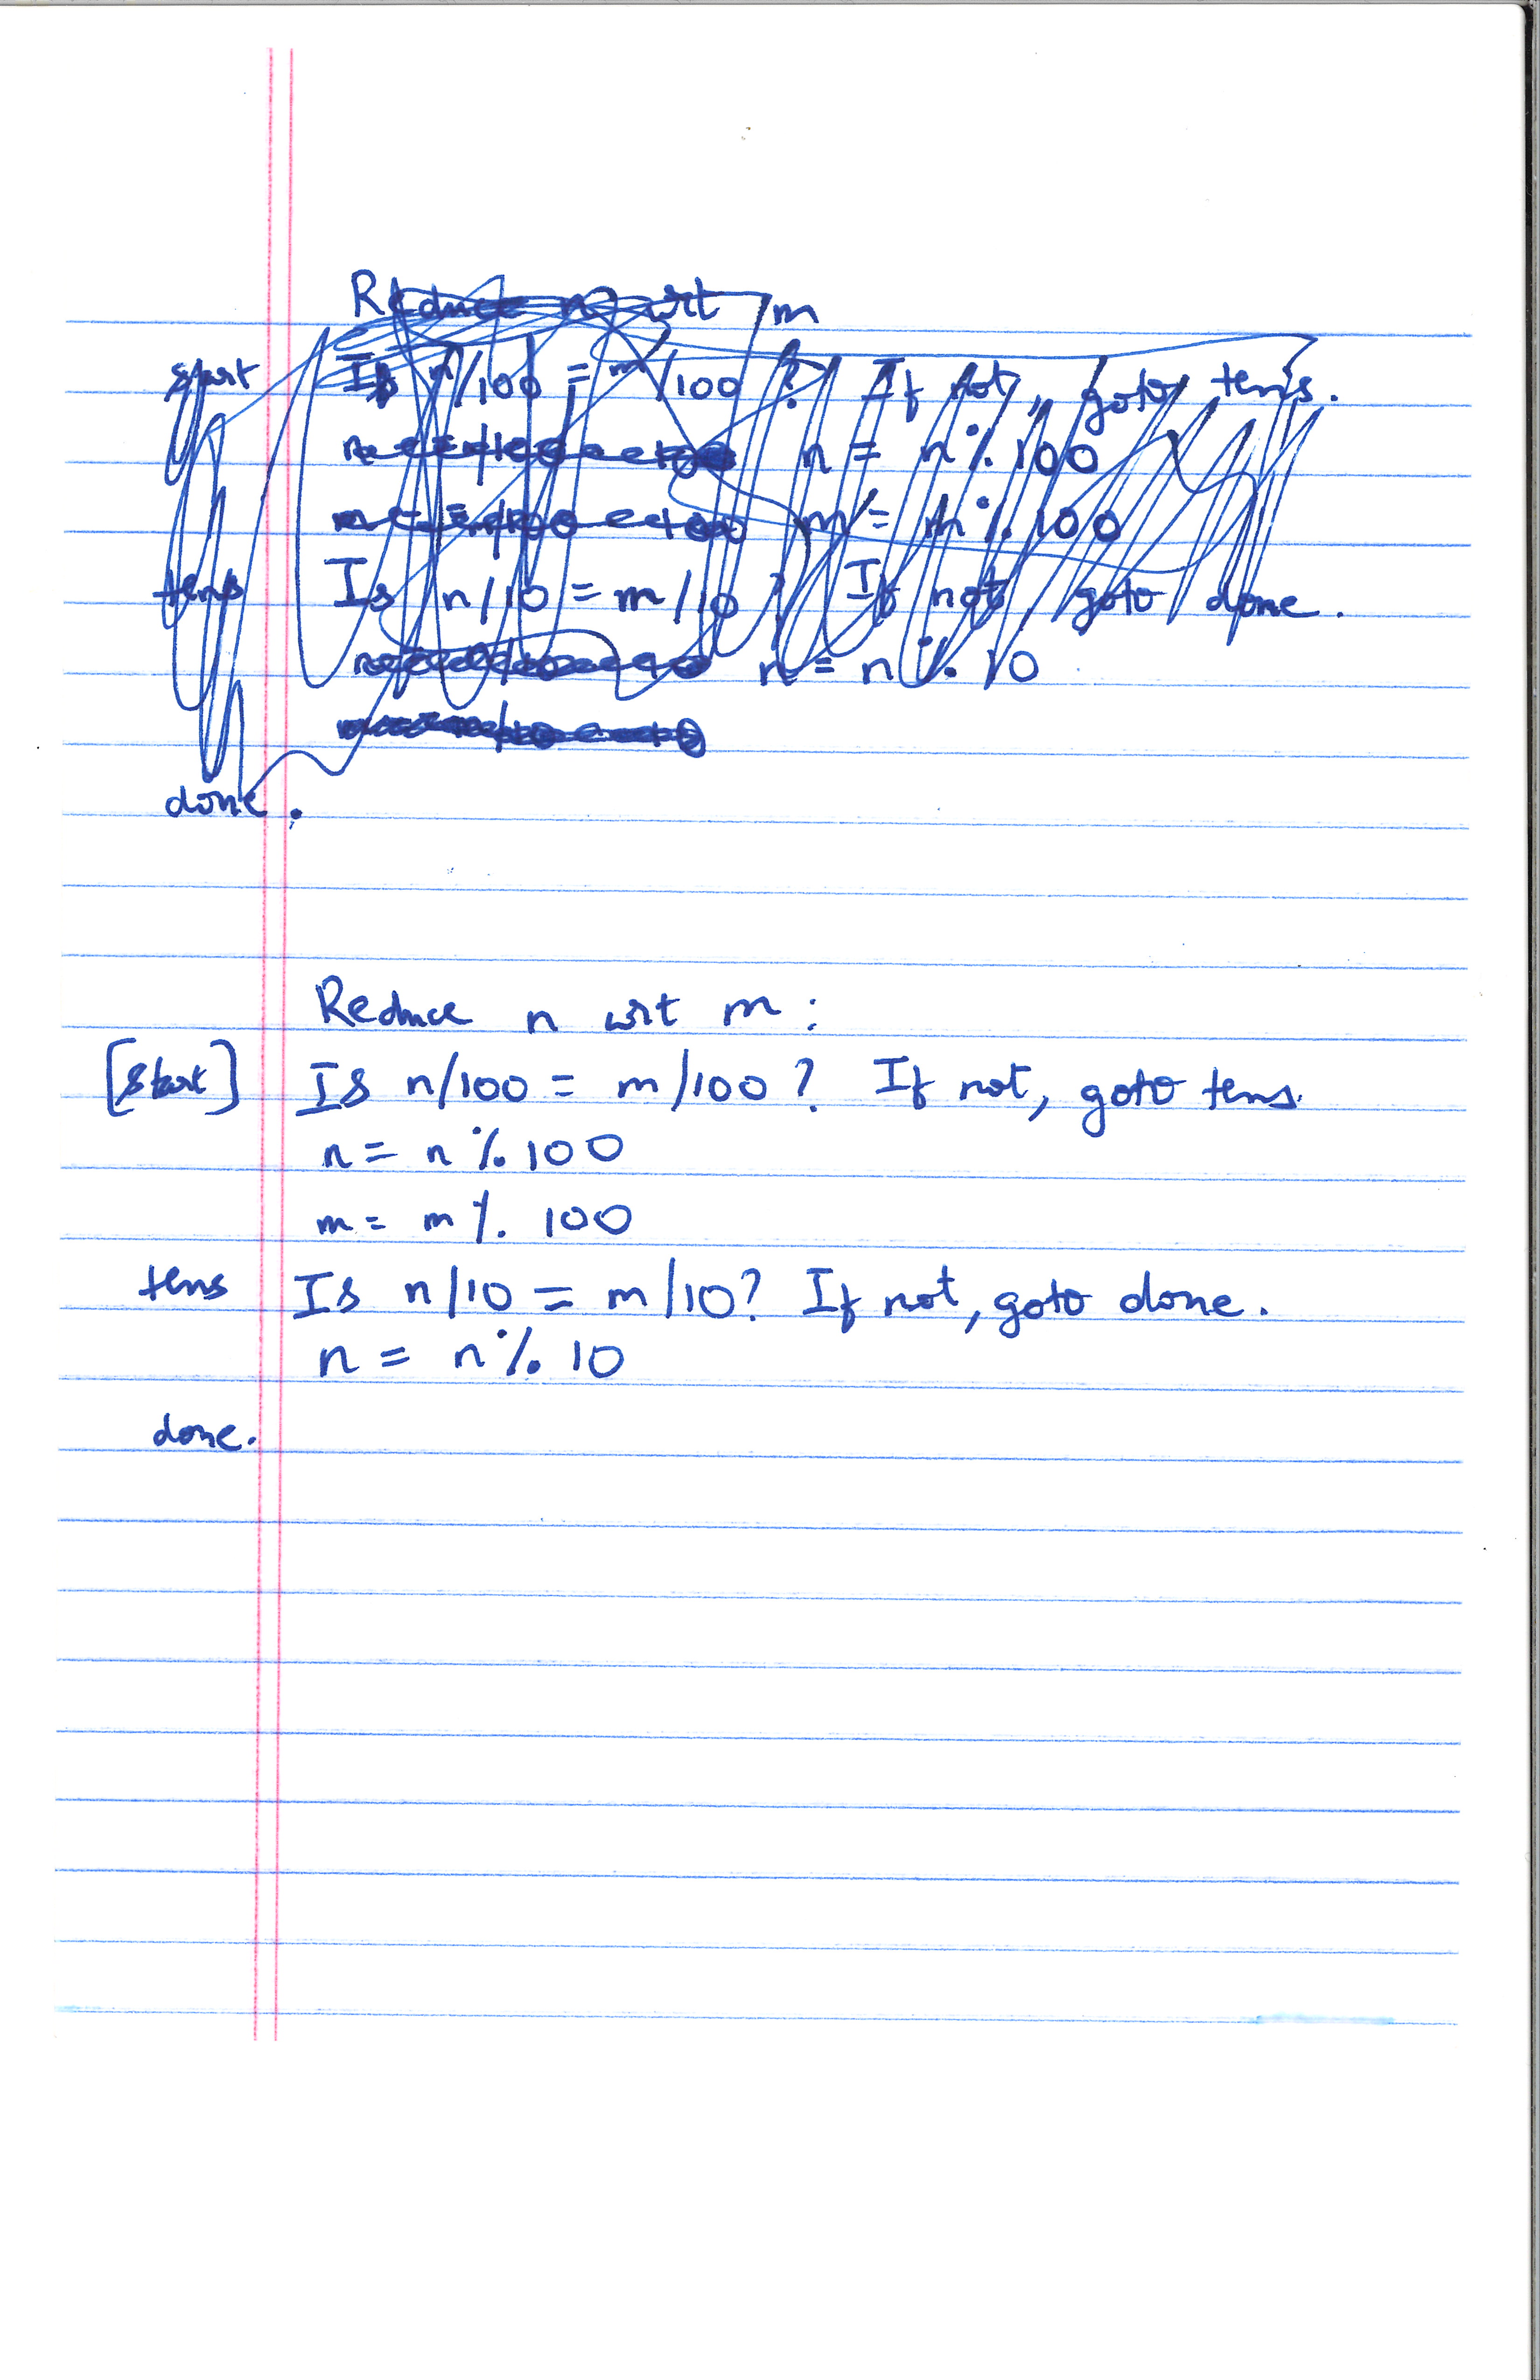 Reduce n wrt m
start Is n/100 = m/100 ? If not, goto tens.
n = n % 100
m = m % 100
tens Is n/10 = m/10 ? If not, goto done.
n = n % 10
done.
Reduce n wrt m :
[start] Is n/100 = m/100 ? If not, goto tens.
n = n % 100
m = m % 100
tens Is n/10 = m/10? If not, goto done.
n = n % 10
done.